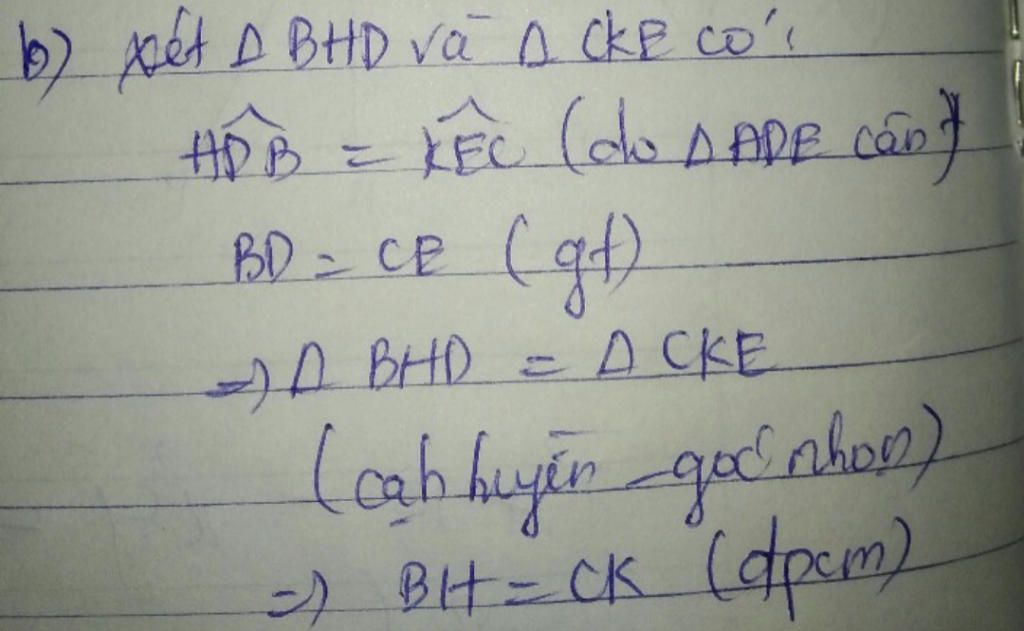 b) Xét Δ BHD và Δ CKE có:
HD̂B = KÊC (do Δ ADE cân)
BD = CE (gt)
=) Δ BHD = Δ CKE
(cạh huyền - góc nhọn)
=) BH = CK (đpcm)